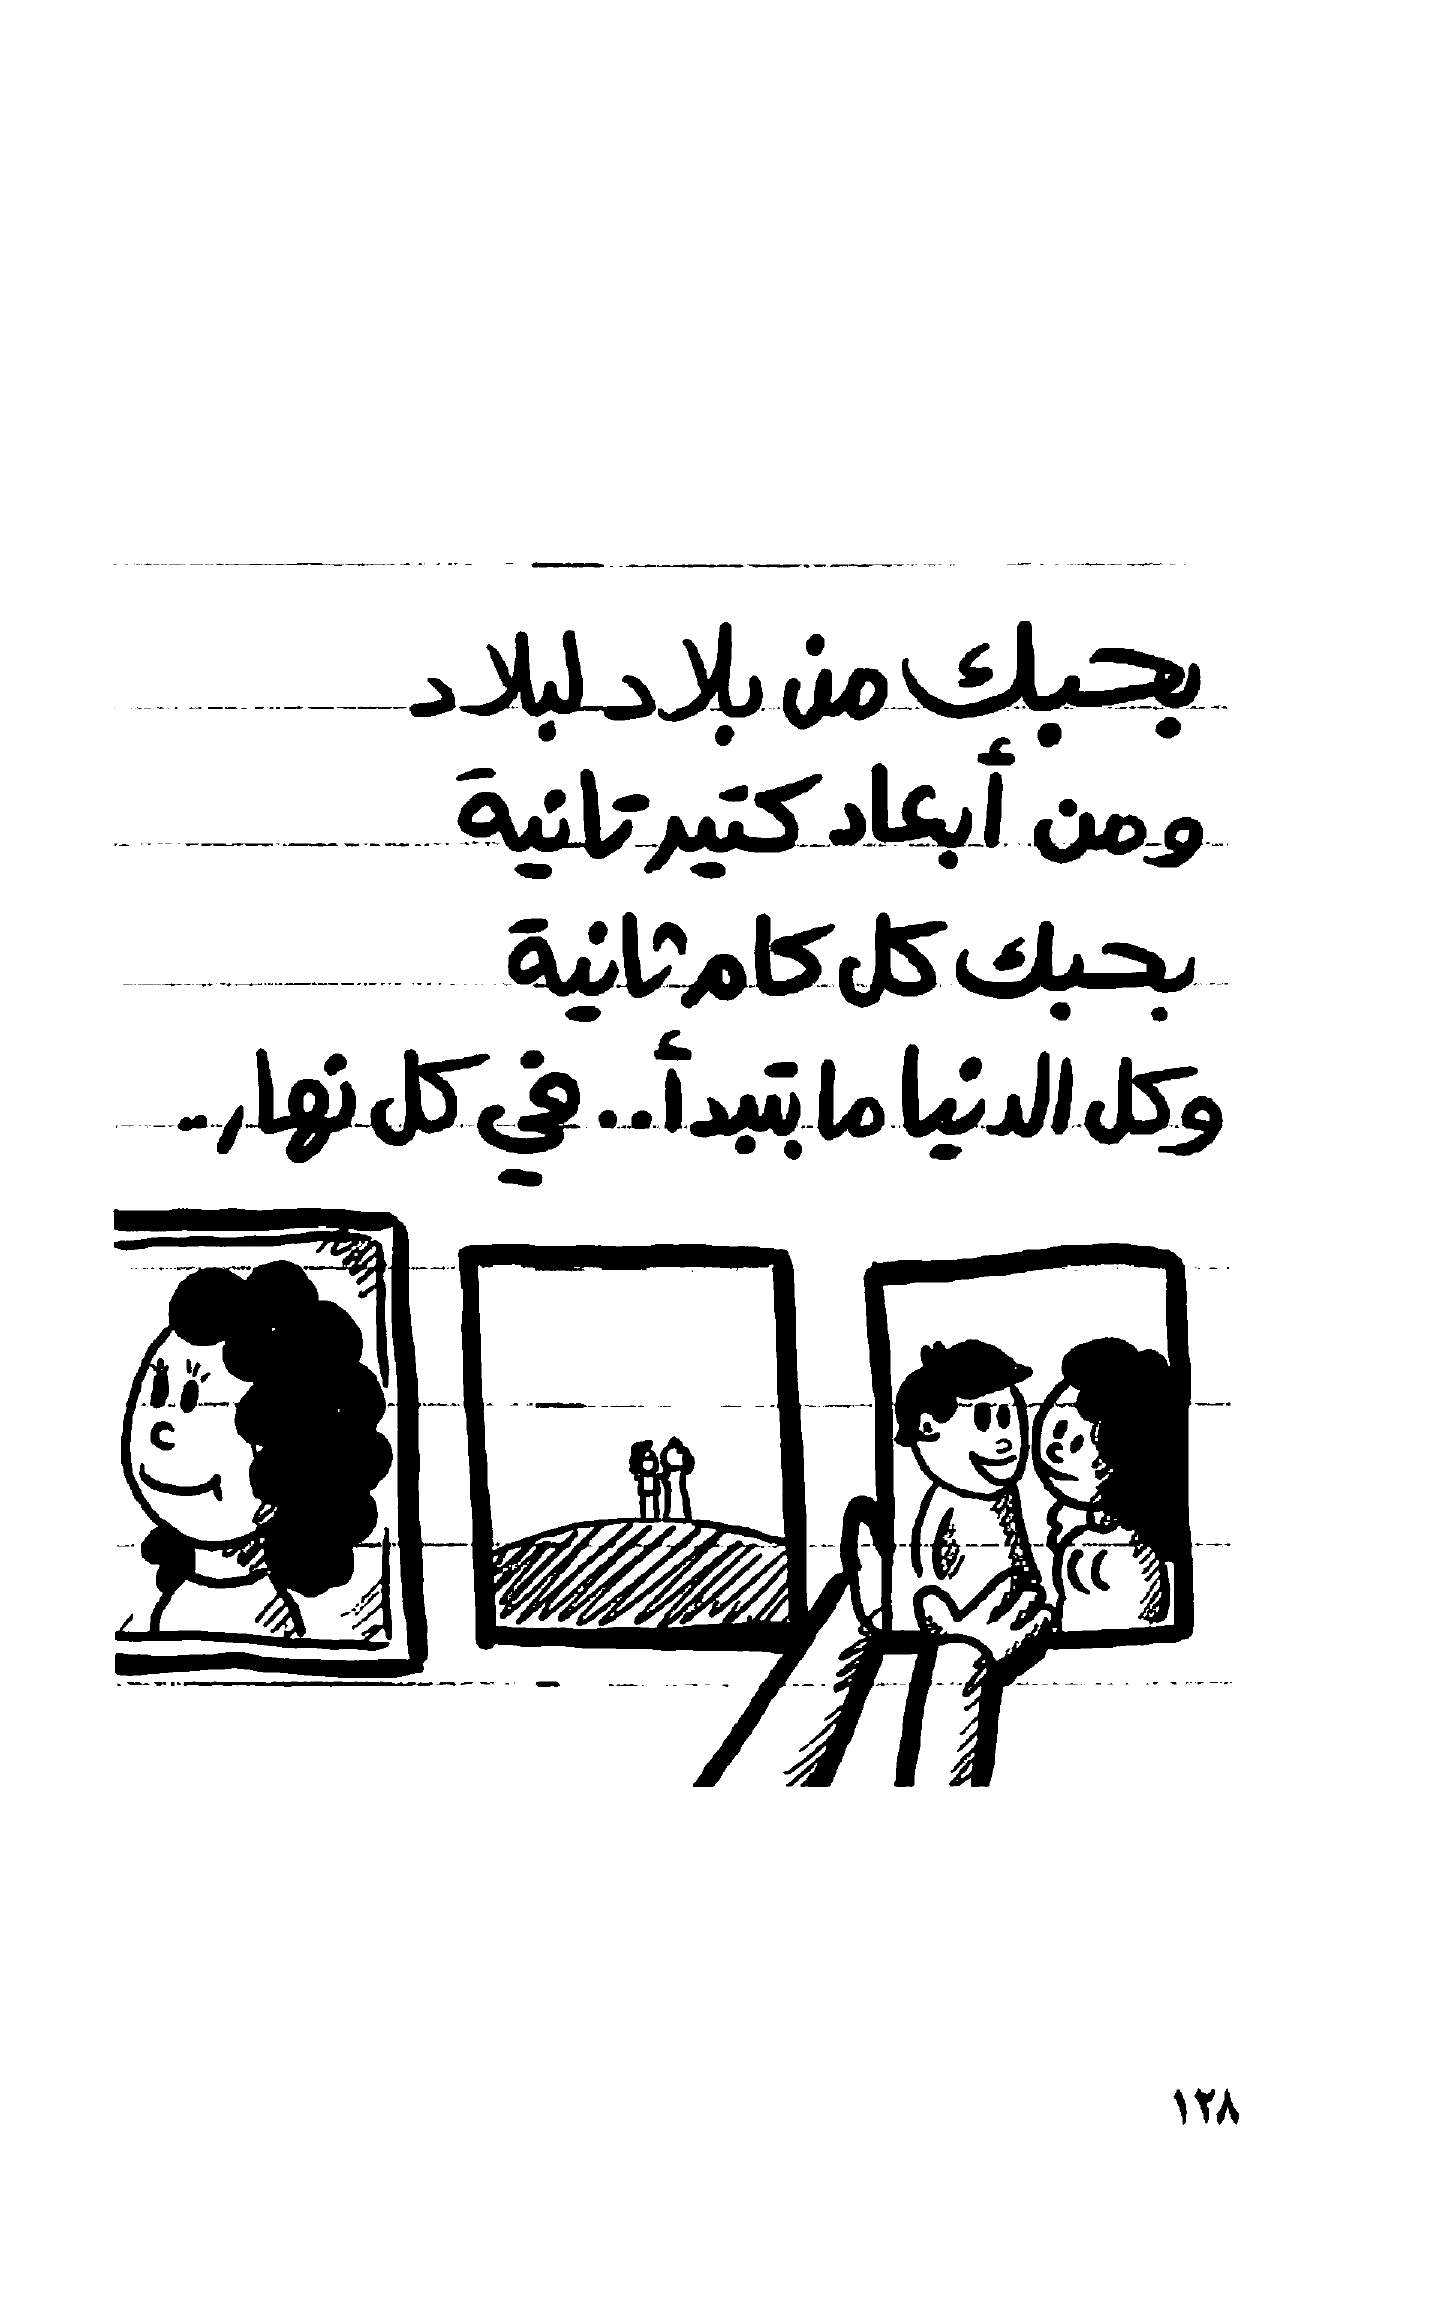 بحبك من بلاد لبلاد
ومن أبعاد كتير تانية
بحبك كل كام ثانية
وكل الدنيا ما بتبدأ.. في كل نهار..
١٢٨